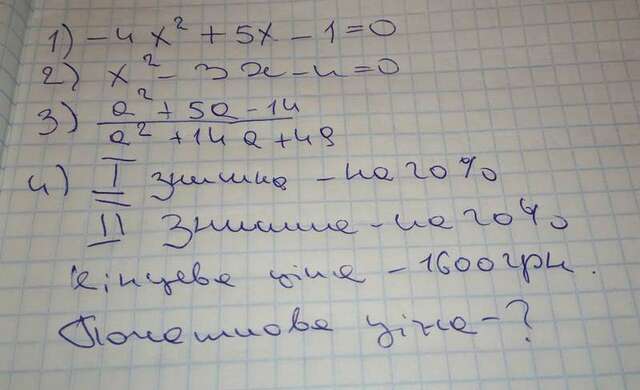 1) -4x² + 5x - 1 = 0
2) x² - 3x - 4 = 0
3) a² + 5a - 14
a² + 14a + 49
4) I знижка - на 20%
II Знижка - на 20%
кінцева ціна - 1600 грн.
Початкова ціна - ?